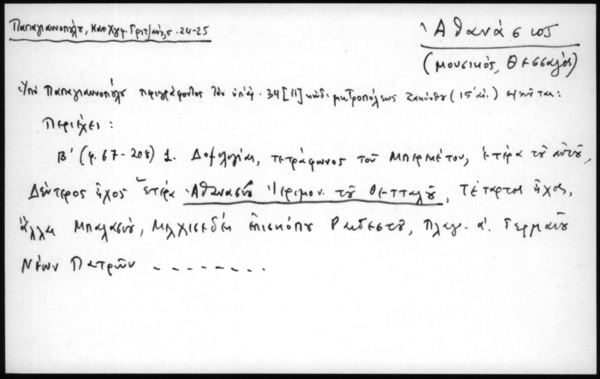 Παπαγιαννοπούλου, σ. 24-25
Ἀθανάσιος
(μουσικός, Θεσσαλός)
Ὑπὸ Παπαγιαννοπούλου περιγράφοντος τὸν ὑπ' ἀρ. 34 [11] κώδ. μητροπόλεως Ζακύνθου (15 αἰ.)
Περιέχει:
Β' (φ. 67-208) 1. Δοξολογίαι, τετράφωνος τοῦ Μπερεκέτου, ἑτέρα τοῦ αὐτοῦ,
Δεύτερος ἦχος ἑτέρα Ἀθανασίου Ἱερομον. τοῦ Θετταλοῦ, Τέταρτος ἦχος,
ἄλλαι Μπαλασίου, Μελχισεδὲκ ἐπισκόπου Ραιδεστοῦ, Πλαγ. α'. Γερμανοῦ
Νέων Πατρῶν - - - - - - - -